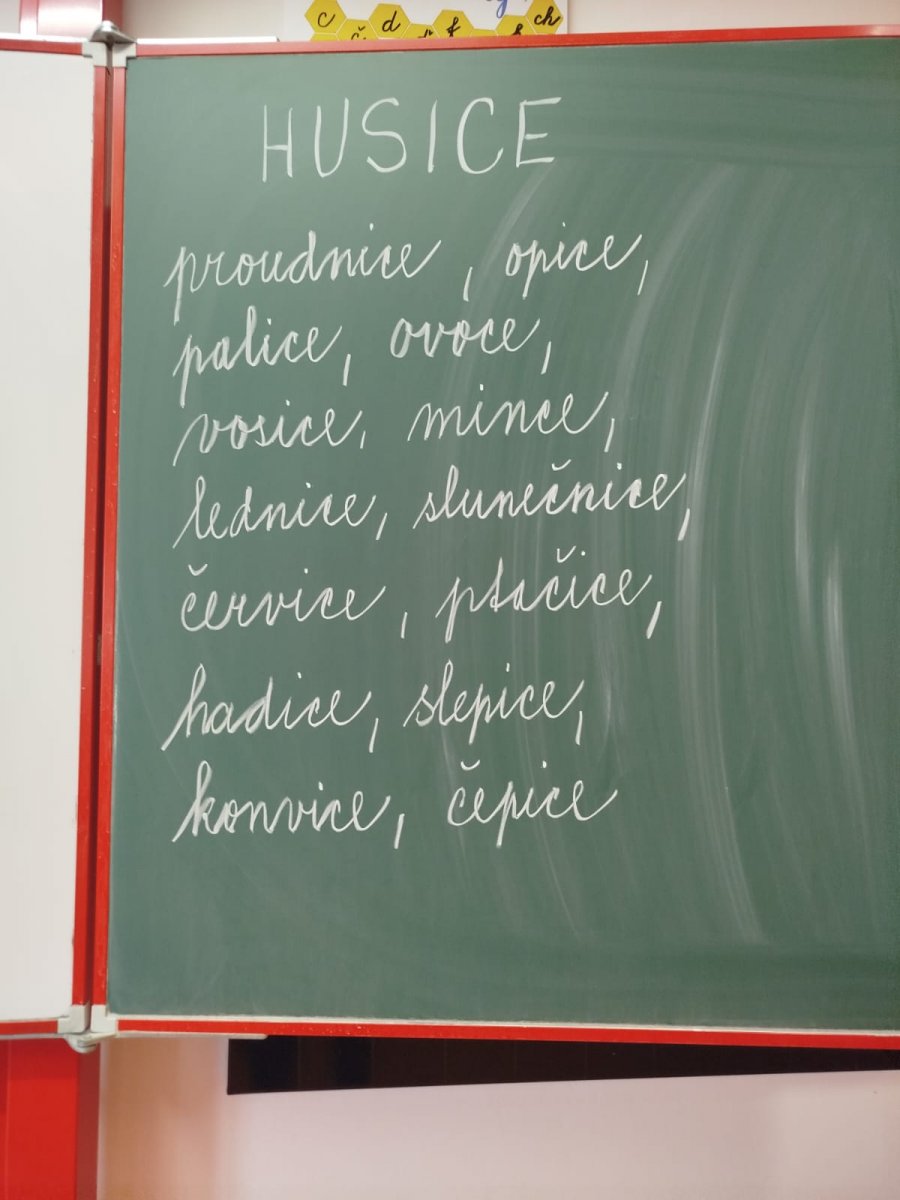 c d f ch
HUSICE
proudnice, opice,
palice, ovoce,
vosice, mince,
lednice, slunečnice,
červice, ptačice,
hadice, slepice,
konvice, čepice